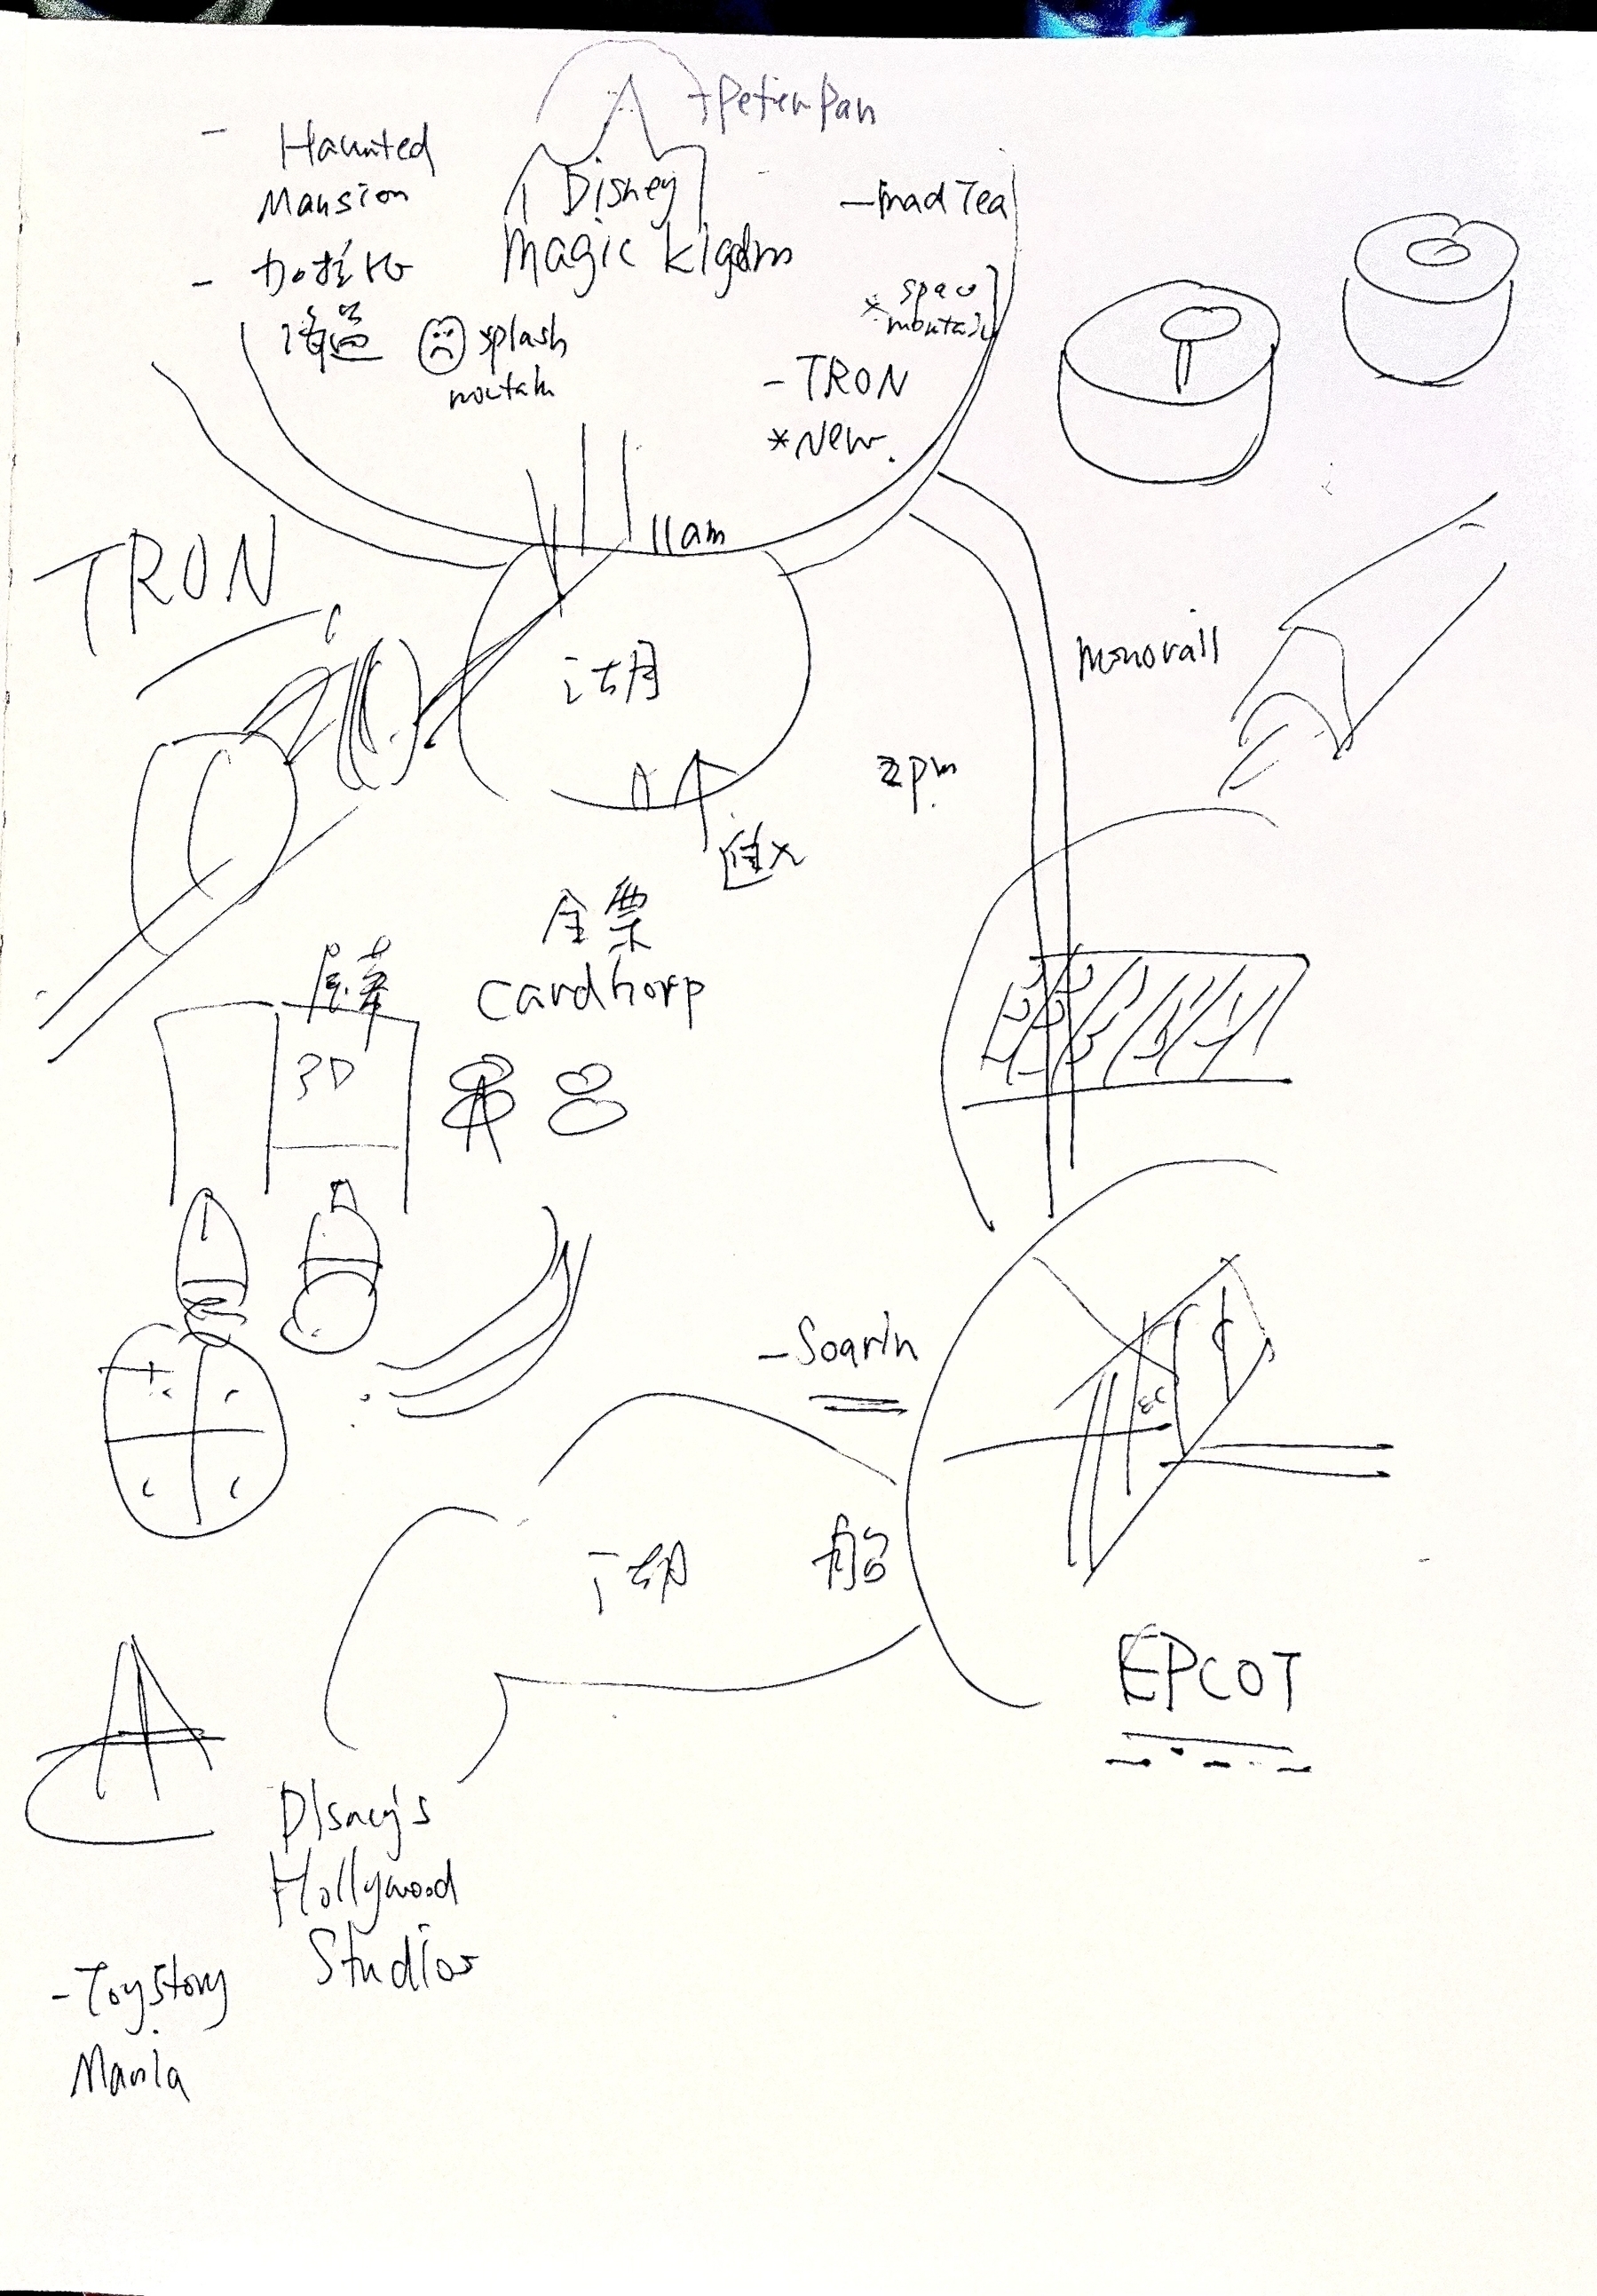 +Peter Pan
- Haunted
Mansion
Disney
Magic kigdm
- mad Tea
- 加勒比
海盗
splash
moutain
* space
moutain
- TRON
* New.
11am
TRON
湖
monorail
2pm
進入
全票
3D
- Soarin
湖
船
EPCOT
Disney's
Hollywood
Studios
- Toystory
Mania